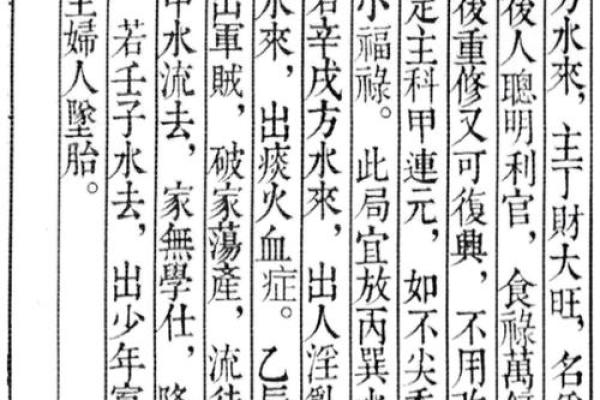 方水來，主丁財大旺，名
後人聰明利官，食祿萬
後重修又可復興，不用改
定主科甲連元，如不尖
小福祿。此局宜放丙巽水
若辛戌方水來，出人淫亂
水來，出痰火血症。乙辰
出軍賊，破家蕩產，流徒
水流去，家無學仕，
若壬子水去，出少年寡
主婦人墜胎。